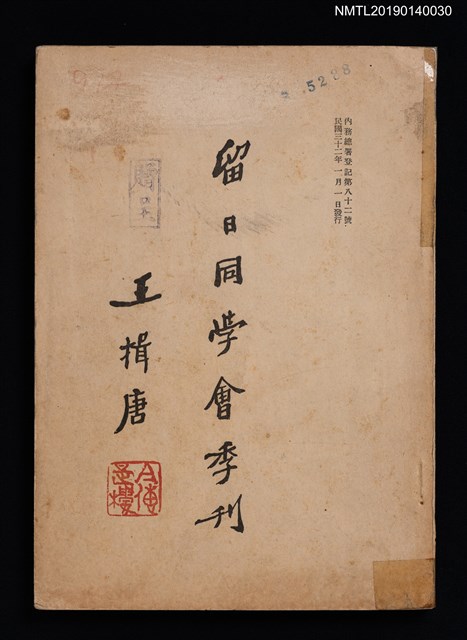 NMTL20190140030
5238
內務總署登記第八十二號
民國三十二年一月一日發行
留日同学會季刊
王揖唐
今傳是樓